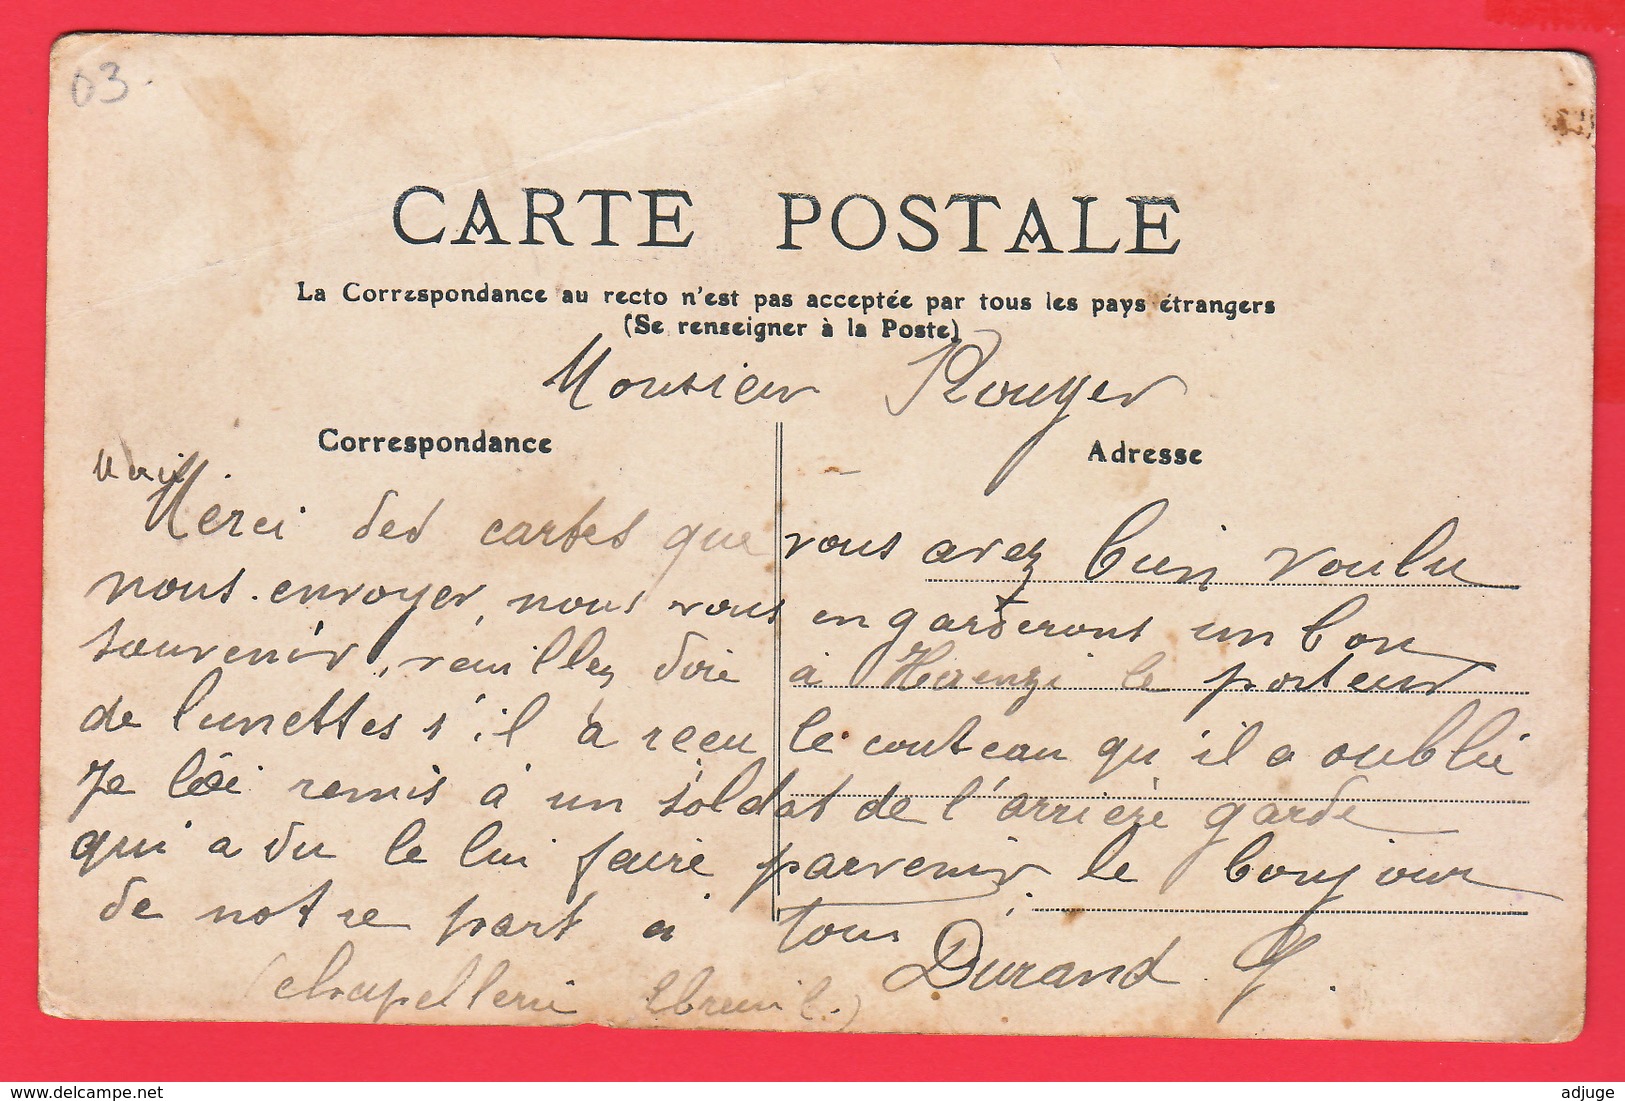 03.
CARTE POSTALE
La Correspondance au recto n'est pas acceptée par tous les pays étrangers
(Se renseigner à la Poste)
Monsieur Rouyer
Correspondance
Adresse
Merci des cartes que vous avez bien voulu
nous envoyer, nous vous en garderons un bon
souvenir, veuillez dire à le porteur
de lunettes s'il a reçu le couteau qu'il a oublié
Je l'ai remis à un soldat de l'arrière garde
qui a du le lui faire parvenir, le bonjour
de notre part à tous Durand
(chapellerie Ebreuil.)
delcampe.net
adjuge